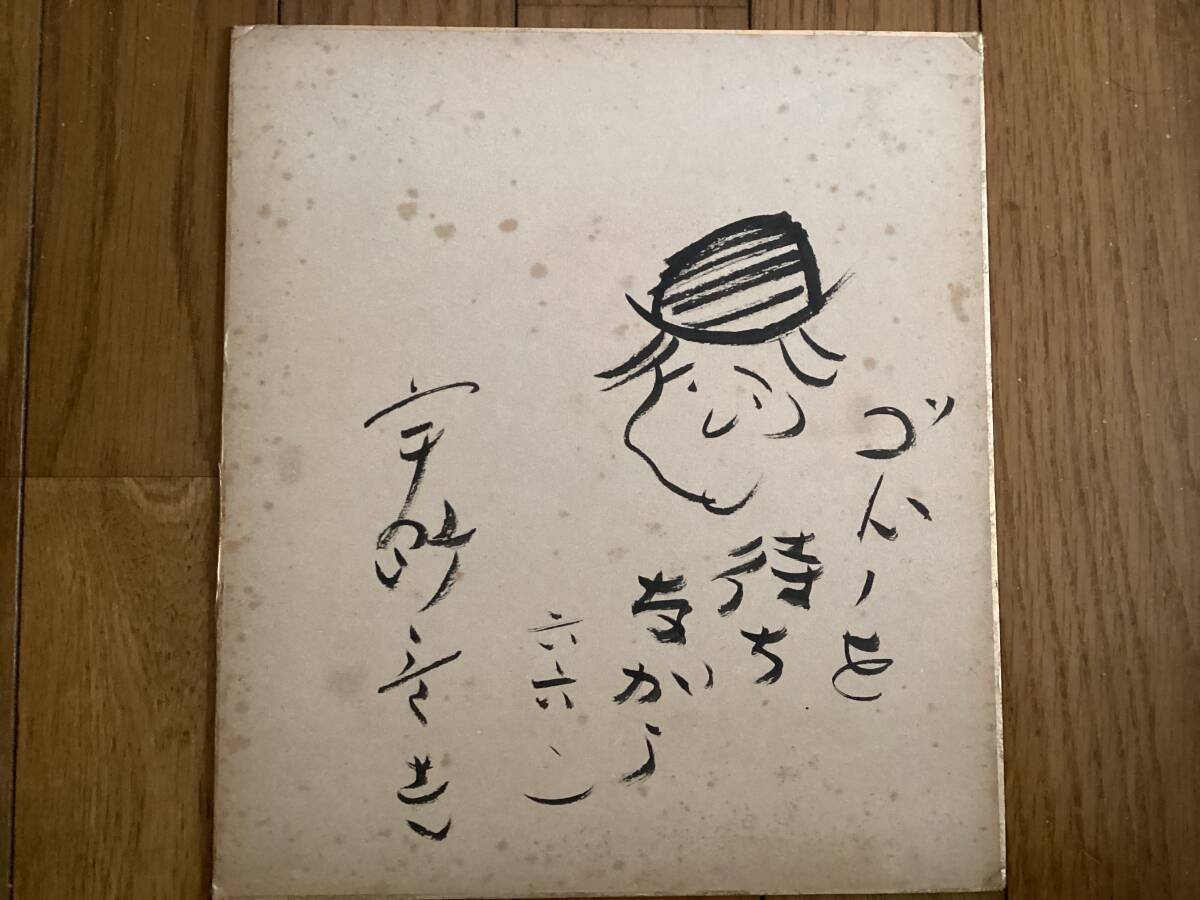 ゴドーを
待ち
ながら
六六、二
宇野重吉